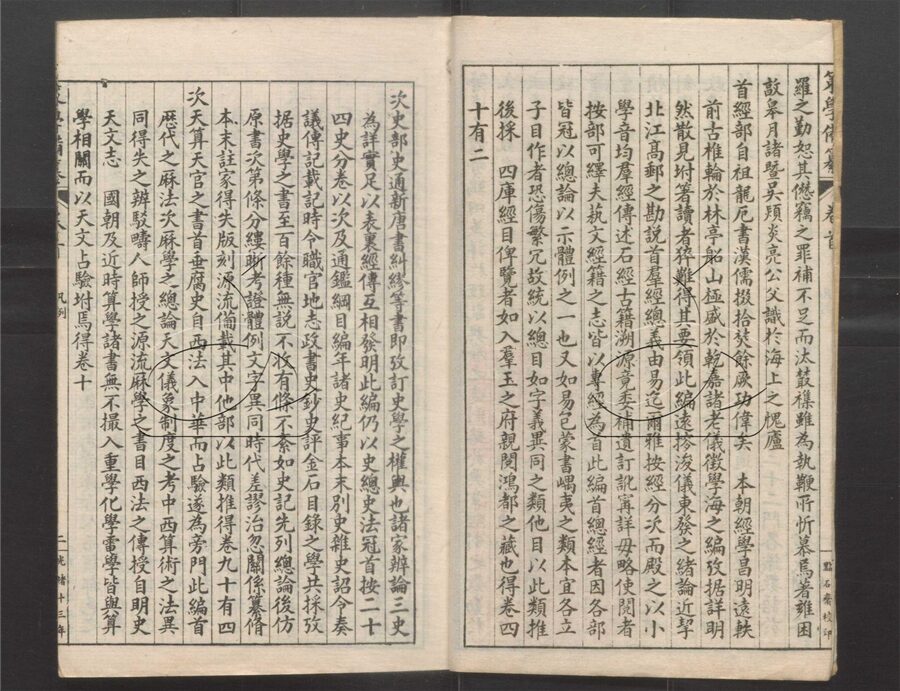 羅之勤恕其僭竊之罪補不足而汰叢襍雖為執鞭所忻慕焉著雍困
敦皋月諸暨吳熲炎亮公父識於海上之愧廬
首經部自祖龍厄書漢儒掇拾焚餘厥功偉矣　本朝經學昌明遠軼
前古椎輪於林亭船山極盛於乾嘉諸老儀徵學海之編攷据詳明
然散見坿著讀者稡難得其要領此編遠摉浚儀東發之緒論近挈
北江高郵之勘說首羣經總義由易迄爾雅按經分次而殿之以小
學音均羣經傳述石經古籍溯源竟委補遺訂訛寀詳毋略使閱者
按部可繹夫執文經籍之志皆以專經為首此編首總經者因各部
皆冠以總論以示體例之一也又如易卮蒙書嵎夷之類本宜各立
子目作者恐傷繁冗故統以總目如字義異同之類他目以此類推
後採　四庫經目俾覽者如入羣玉之府親閱鴻都之藏也得卷四
十有二
次史部史通新唐書糾繆等書即攷訂史學之權輿也諸家辨論三史
為詳實足以表裏經傳互相發明此編仍以史總史法冠首按二十
四史分卷以次及通鑑綱目編年諸史紀事本末別史雜史詔令奏
議傳記載記時令職官地志政書史鈔史評金石目錄之學共採攷
据史學之書至百餘種無說不收有條不紊如史記先列總論後仿
原書次第條分縷晰考證體例文字異同時代差謬治忽關係纂脩
本末註家得失版刻源流僃載其中他部以此類推得卷九十有四
次天算天官之書首垂腐史自西法入中華而占驗遂為旁門此編首
歷代之厤法次厤學之總論天文儀象制度之考中西算術之法異
同得失之辨駁疇人師授之源流厤學之書目西法之傳授自明史
天文志　國朝及近時算學諸書無不撮入重學化學雷學皆與算
學相關而以天文占驗坿焉得卷十
卷首
點石齋校印
凡例
二
光緒十三年